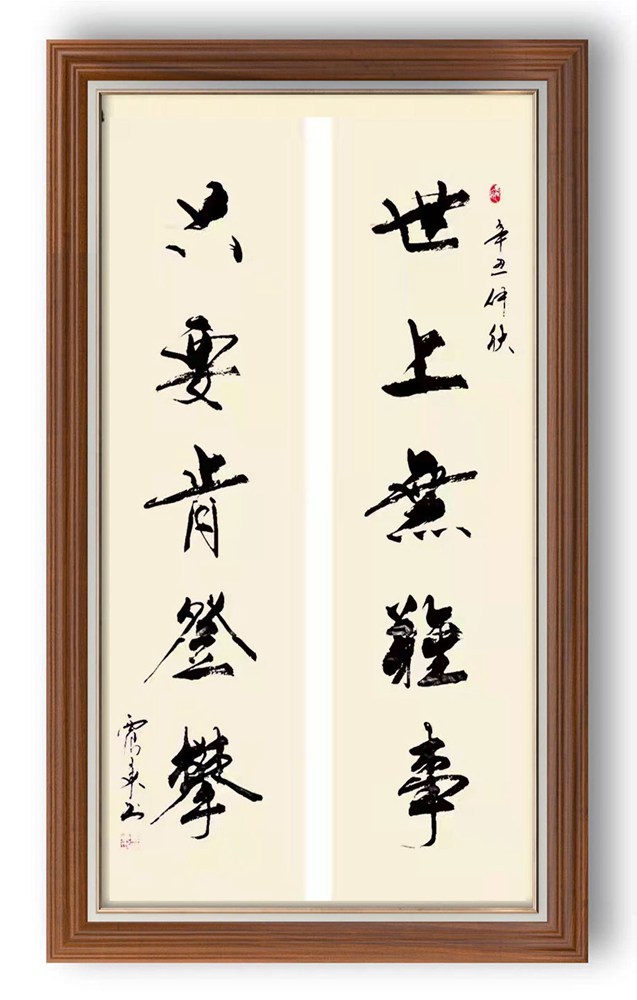 辛丑仲秋
世上無難事
只要肯登攀
書